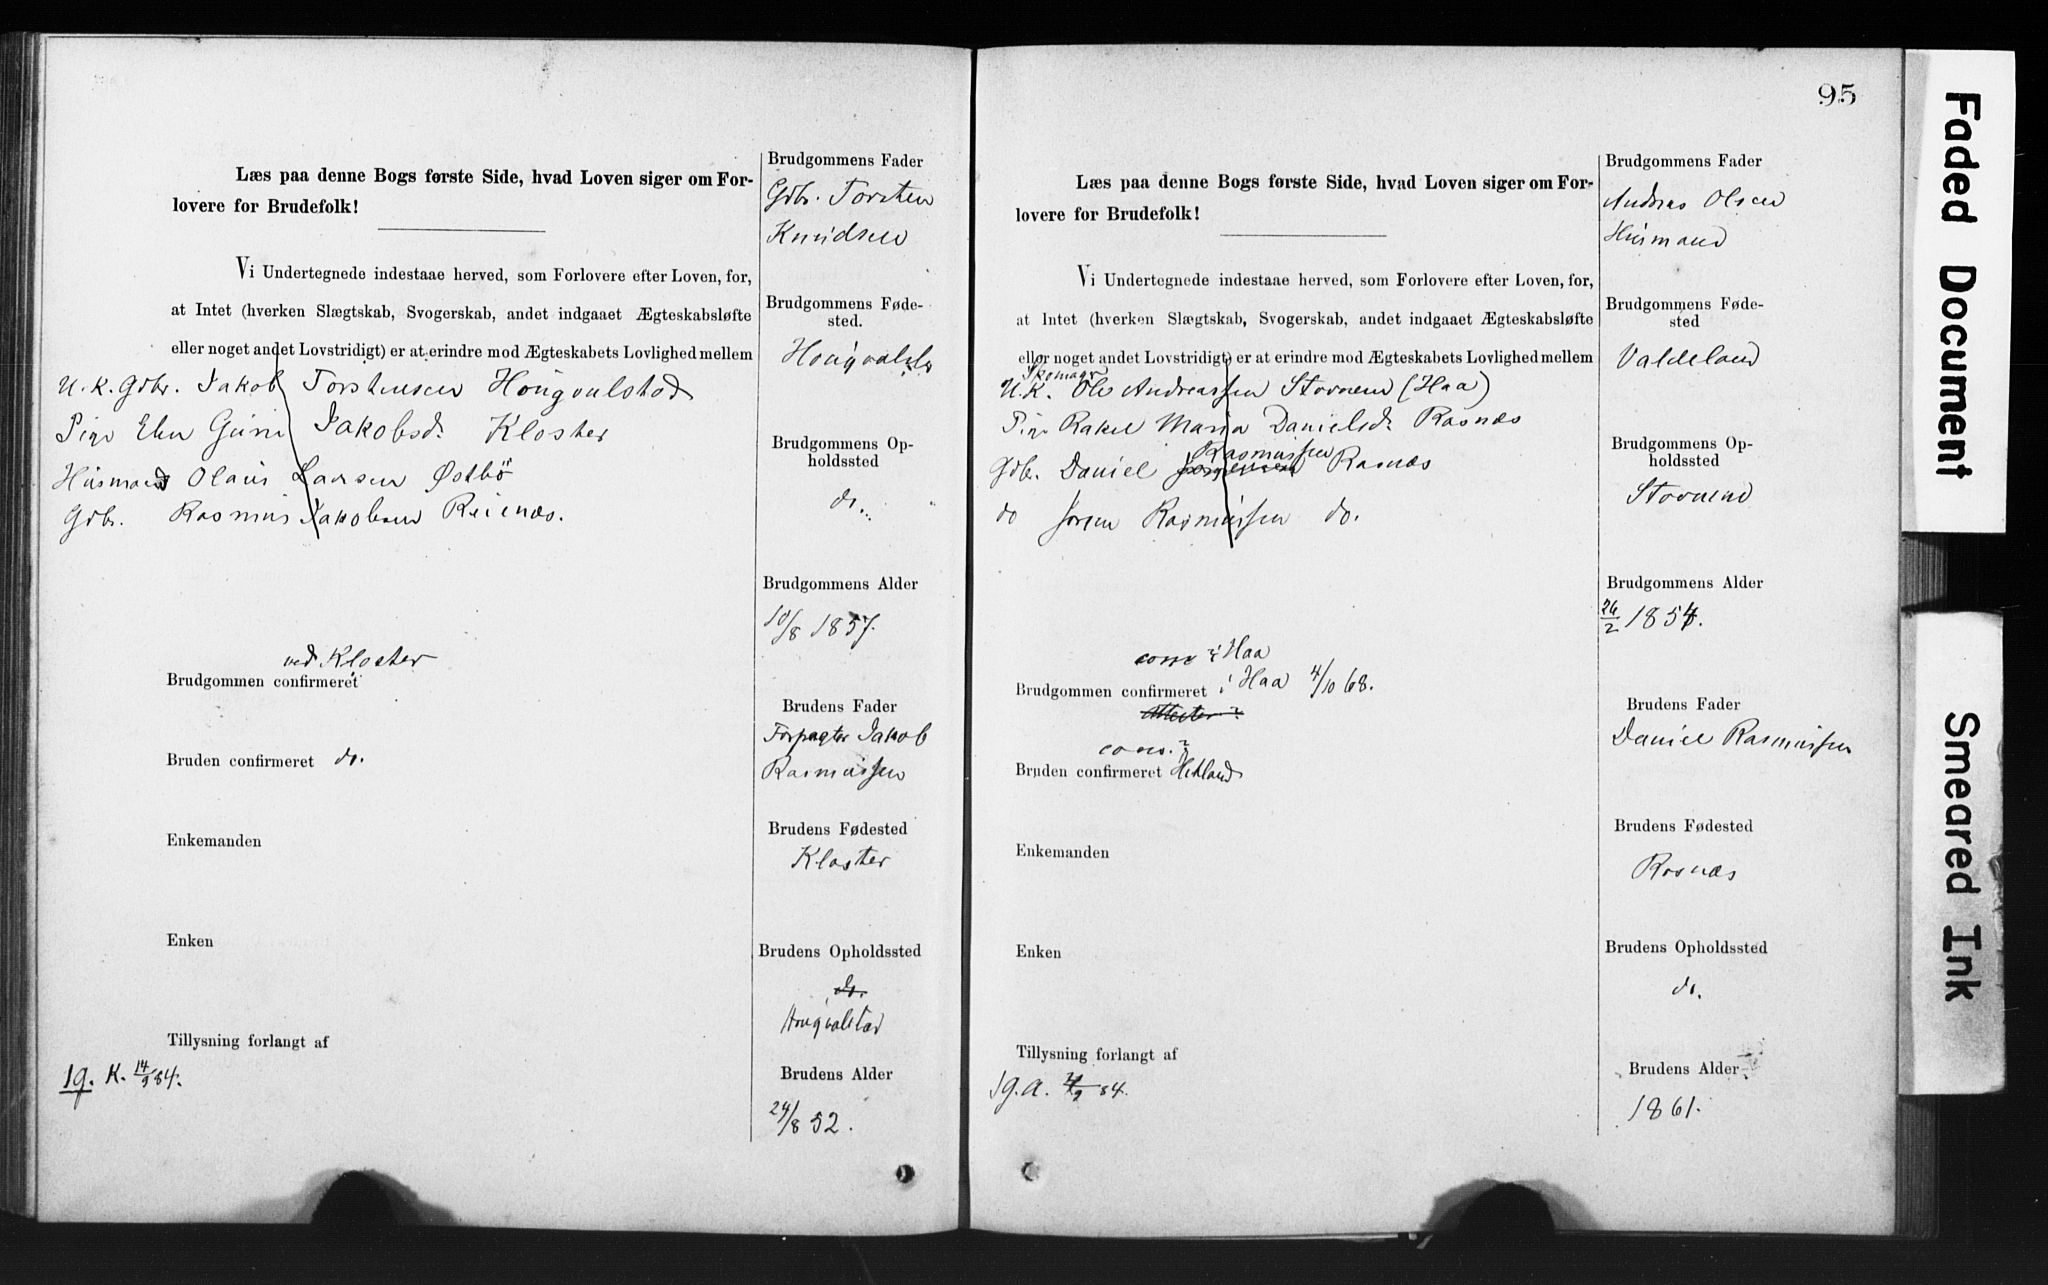 Læs paa denne Bogs første Side, hvad Loven siger om For-
lovere for Brudefolk!
Vi Undertegnede indestaae herved, som Forlovere efter Loven, for,
at Intet (hverken Slægtskab, Svogerskab, andet indgaaet Ægteskabsløfte
eller noget andet Lovstridigt) er at erindre mod Ægteskabets Lovlighed mellem
U. K. Gdbr. Jakob Torstensen Hougvalstad
Pige Elen Gurine Jakobsd. Kloster
Husmand Olaus Larsen Østbö
Gdbr. Rasmus Jakobsen Reienæs.
ved Kloster
Brudgommen confirmeret
Bruden confirmeret do.
Enkemanden
Enken
Tillysning forlangt af
19. K. 14/9 84.
Brudgommens Fader
Gdbr. Torsten
Knudsen
Brudgommens Føde-
sted.
Brudgommens Op-
holdssted
do.
Brudgommens Alder
10/8 1857.
Brudens Fader
Forpagter Jakob
Rasmussen
Brudens Fødested
Kloster
Brudens Opholdssted
do.
Hougvalstad
Brudens Alder
24/8 52.
95
Læs paa denne Bogs første Side, hvad Loven siger om For-
lovere for Brudefolk!
Vi Undertegnede indestaae herved, som Forlovere efter Loven, for,
at Intet (hverken Slægtskab, Svogerskab, andet indgaaet Ægteskabsløfte
eller noget andet Lovstridigt) er at erindre mod Ægteskabets Lovlighed mellem
Skomager
U. K. Ole Andreassen Stovnem (Haa)
Pige Rakel Maria Danielsd. Rasnæs
Rasmussen
Gdbr. Daniel Rasnæs
do Søren Rasmussen do.
conv i Haa
Brudgommen confirmeret i Haa 4/10 68.
Attester?
conv. ?
Bruden confirmeret Hetland
Enkemanden
Enken
Tillysning forlangt af
19. A. 84.
Brudgommens Fader
Andreas Olsen
Husmand
Brudgommens Føde-
sted
Valdeland
Brudgommens Op-
holdssted
Stovnem
Brudgommens Alder
26/2 1854.
Brudens Fader
Daniel Rasmussen
Brudens Fødested
Rasnæs
Brudens Opholdssted
do.
Brudens Alder
1861.
Faded Document
Smeared Ink